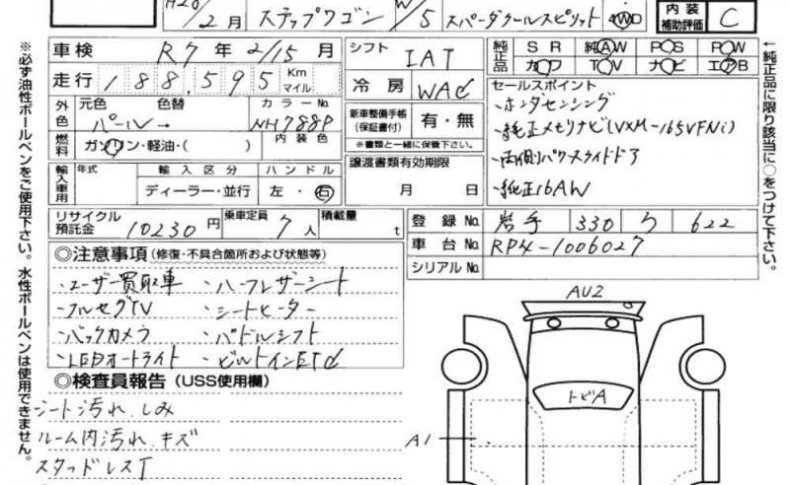 H28/2月 ステップワゴン W/5 スパーダクールスピリット 4WD
内装補助評価 C
車検 R7年2/15月
シフト IAT
純正品 SR 純AW PS PW
カワ TV ナビ エアB
走行 188,595 Km マイル
冷房 WAC
セールスポイント
・ホンダセンシング
外色 元色 色替 カラーNo.
パール→ NH788P
新車整備手帳(保証書付) 有・無
※書類と一緒に保管下さい。
・純正メモリナビ(VXM-165VFNi)
燃料 ガソリン・軽油・( ) 内装色
・両側パワースライドドア
輸入車用 年式 輸入区分 ハンドル
ディーラー・並行 左・右
譲渡書類有効期限
月 日
・純正16AW
リサイクル預託金 10230円 乗車定員 7人 積載量 t
登録No. 岩手 330 ら 622
車台No. RP4-1006027
シリアルNo.
◎注意事項(修復・不具合箇所および状態等)
・ユーザー買取車 ・ハーフレザーシート
・フルセグTV ・シートヒーター
・バックカメラ ・パドルシフト
・LEDオートライト ・ビルトインETC
◎検査員報告(USS使用欄)
シート汚れ、しみ
ルーム内汚れ、キズ
スタッドレスT
AU2
トビA
A1
※必ず油性ボールペンをご使用下さい。水性ボールペンは使用できません。
←純正品に限り該当に○をつけて下さい。